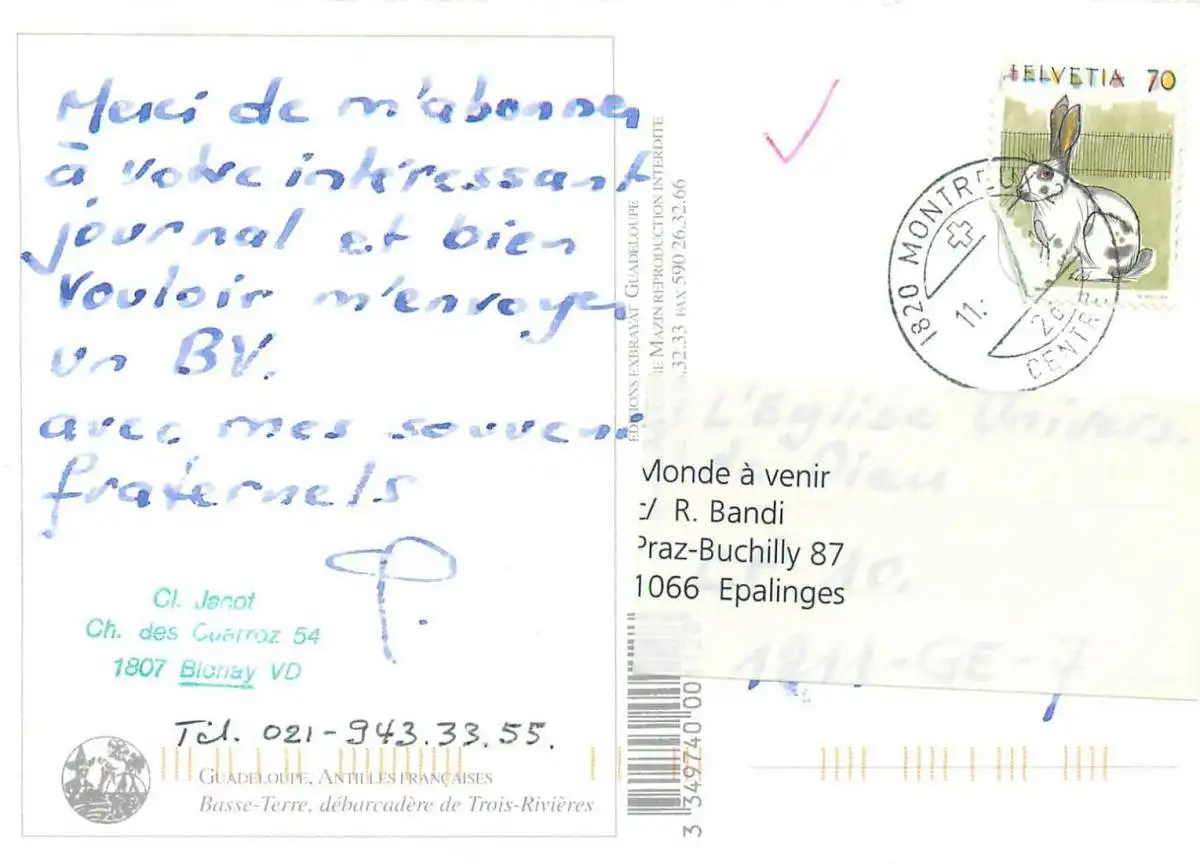 Merci de m'abonner
à votre intéressant
journal et bien
vouloir m'envoyer
un BV.
avec mes souveni
fraternels
P.
Cl. Janot
Ch. des Cuarroz 54
1807 Blonay VD
Tél. 021-943.33.55.
GUADELOUPE, ANTILLES FRANÇAISES
Basse-Terre, débarcadère de Trois-Rivières
EDITIONS EXBRAYAT GUADELOUPE
MAZIN REPRODUCTION INTERDITE
.32.33 FAX 590 26.32.66
3 349740 00
HELVETIA 70
1820 MONTREU
11.
CENTR
L'Eglise Univers.
de Dieu
Monde à venir
c/ R. Bandi
Praz-Buchilly 87
1066 Epalinges
1211 GE-7